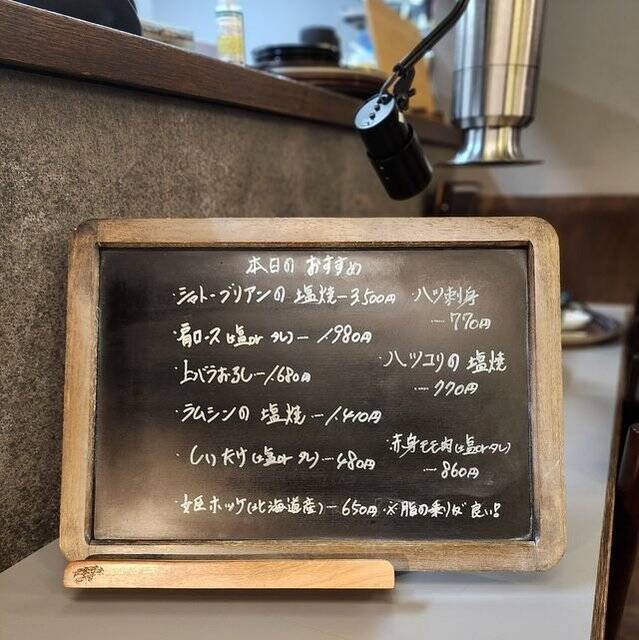 本日の おすすめ
・シャトーブリアンの 塩焼ー3,500円
・肩ロース(塩or タレ)ー 1,980円
・上バラおろしー1,680円
・ラムシンの 塩焼 ー 1,410円
・しいたけ(塩or タレ)ー480円
・姫ホッケ(北海道産)ー650円 ※脂の乗りが良い!!
・ハツ刺身
ー770円
・ハツコリの 塩焼
ー770円
・赤身モモ肉(塩orタレ)
ー860円